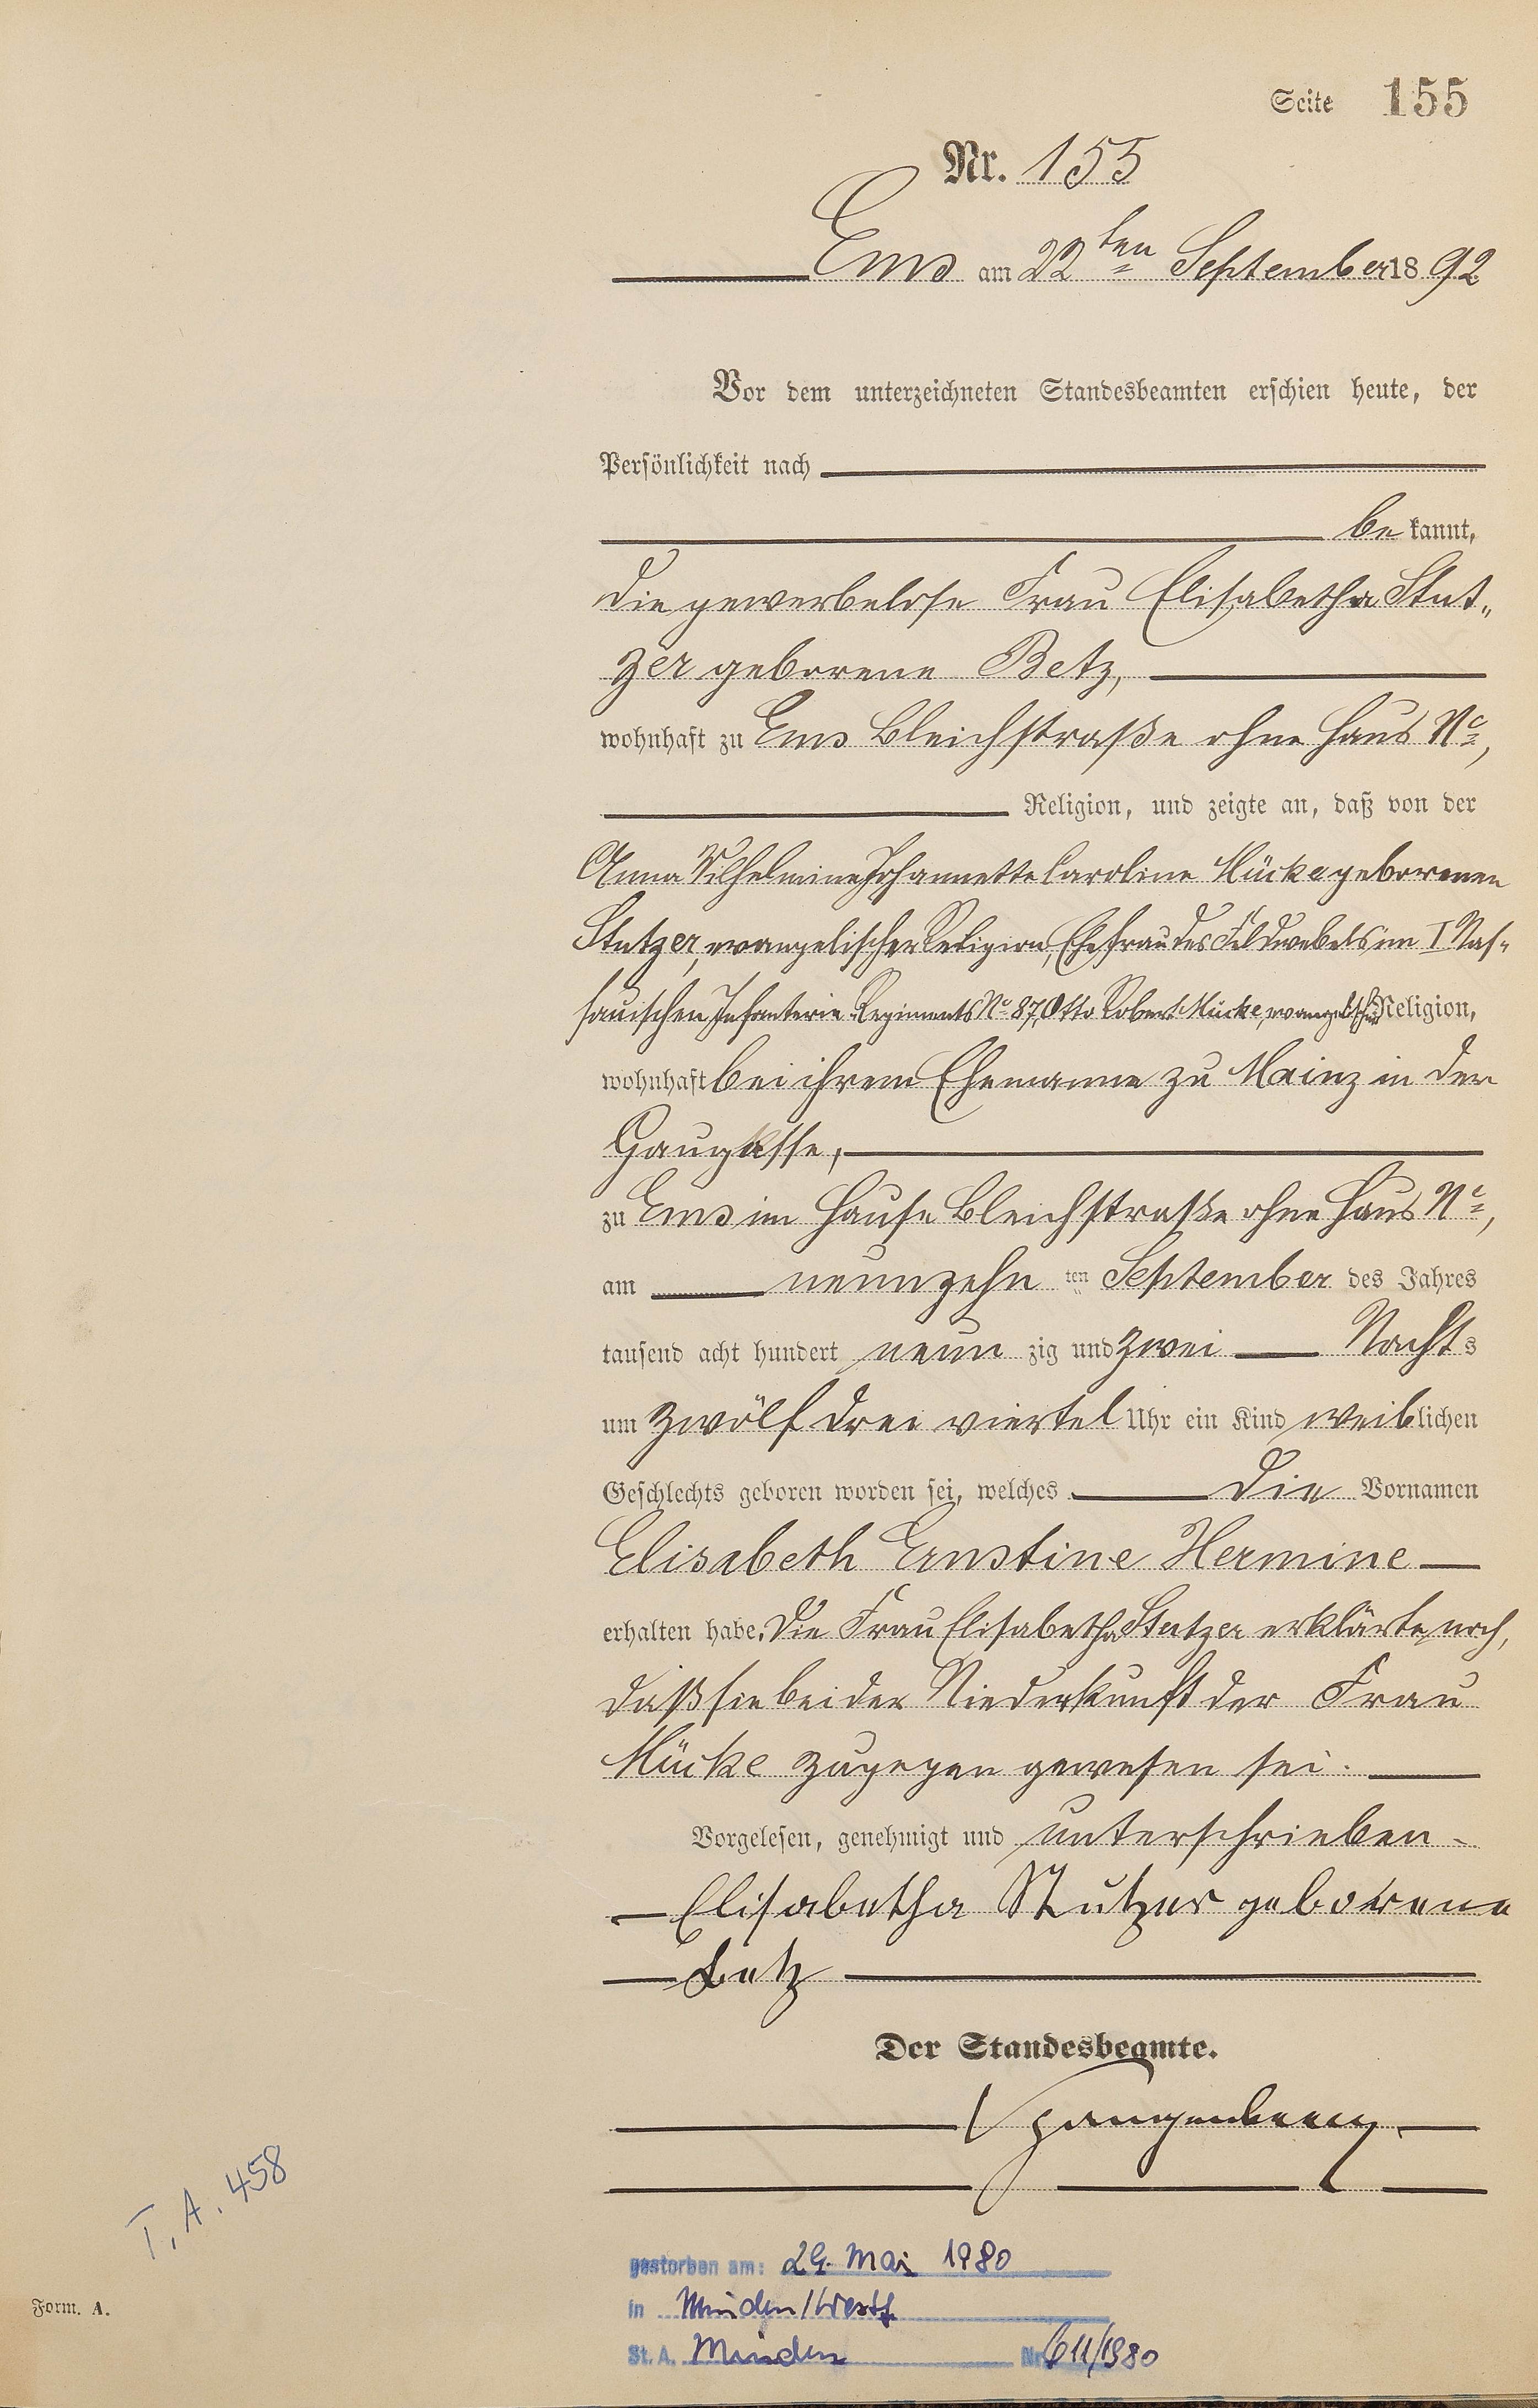 Seite 155
Nr. 155
Ems am 22ten September 1892
Vor dem unterzeichneten Standesbeamten erschien heute, der
Persönlichkeit nach
bekannt,
die gewerbelose Frau Elisabetha Stut„
zer geborene Betz,
wohnhaft zu Ems Bleichstraße ohne Haus No,
Religion, und zeigte an, daß von der
Anna Wilhelmine Johannette Caroline Mücke geborenen
Stutzer, evangelischer Religion, Ehefrau des Feldwebels im I Nas-
sauischen Infanterie Regiments No 87, Otto Robert Mücke, evangelischer Religion,
wohnhaft bei ihrem Ehemanne zu Mainz in der
Gaugasse,
zu Ems im Hause Bleichstraße ohne Haus No,
am neunzehn ten September des Jahres
tausend acht hundert neun zig und zwei Nachts
um zwölf drei viertel Uhr ein Kind weiblichen
Geschlechts geboren worden sei, welches die Vornamen
Elisabeth Ernstine Hermine
erhalten habe. Die Frau Elisabetha Stutzer erklärte noch,
daß sie bei der Niederkunft der Frau
Mücke zugegen gewesen sei.
Vorgelesen, genehmigt und unterschrieben
Elisabetha Stutzer geborene
Betz
Der Standesbeamte.
Spangenberg
T. A. 458
gestorben am: 29. Mai 1980
in Minden/Westf
St. A. Minden Nr. 611/1980
Form. A.